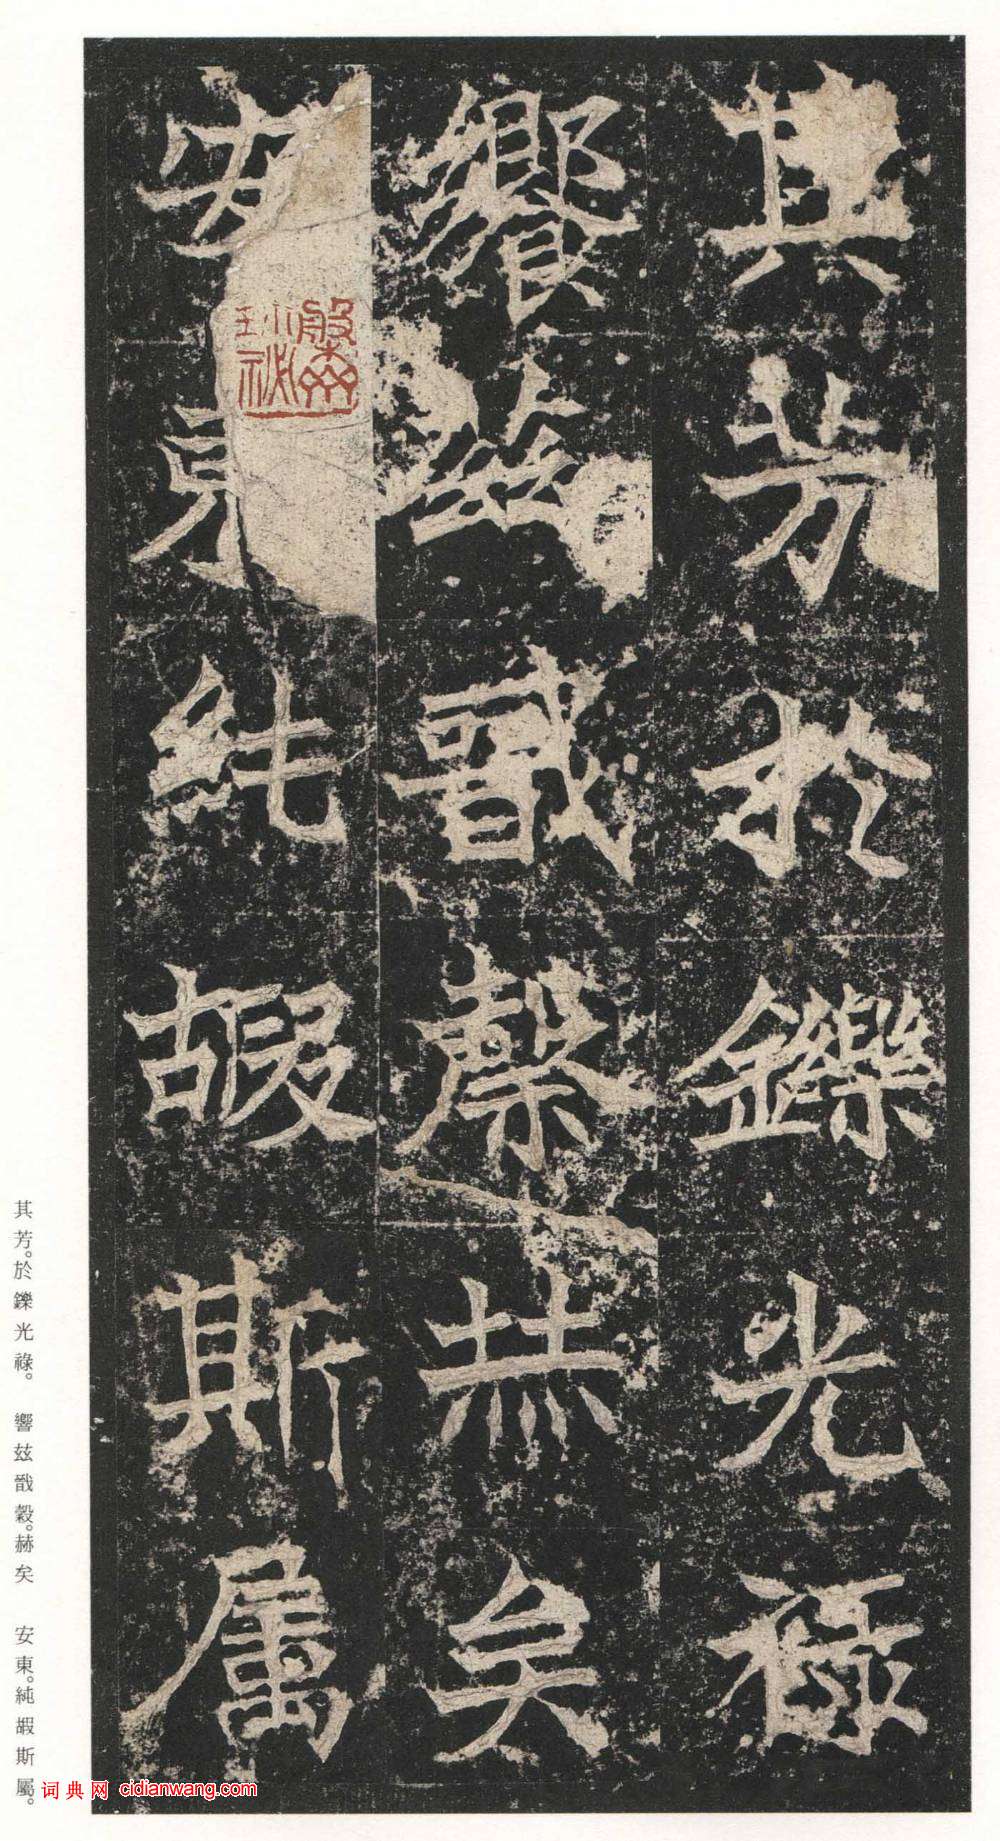 其芳於鑠光祿
饗茲戩穀赫矣
安東純嘏斯属
其芳。於鑠光祿。 響兹戩穀。赫矣 安東。純嘏斯屬。
词典网 cidianwang.com